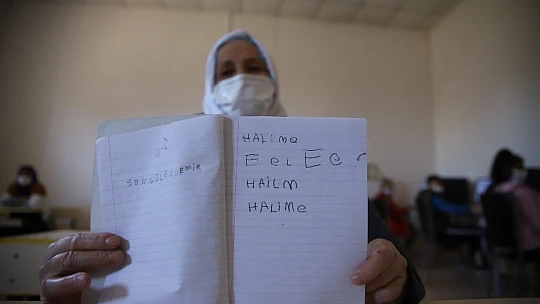 SONGÜLÖZDEMİR
HALiMe
EeLEe
HAİLM
HALİMe